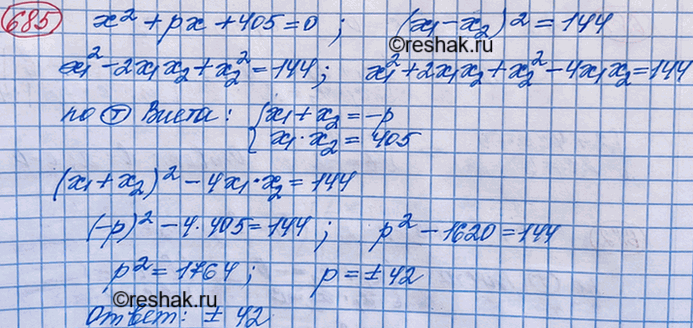 685 x² + px + 405 = 0 ; (x₁ - x₂)² = 144
x₁² - 2x₁x₂ + x₂² = 144 ; x₁² + 2x₁x₂ + x₂² - 4x₁x₂ = 144
©reshak.ru
по Т Виета : { x₁ + x₂ = -p
x₁ · x₂ = 405
(x₁ + x₂)² - 4x₁ · x₂ = 144
(-p)² - 4 · 405 = 144 ; p² - 1620 = 144
p² = 1764 ; p = ± 42
©reshak.ru
Ответ : ± 42